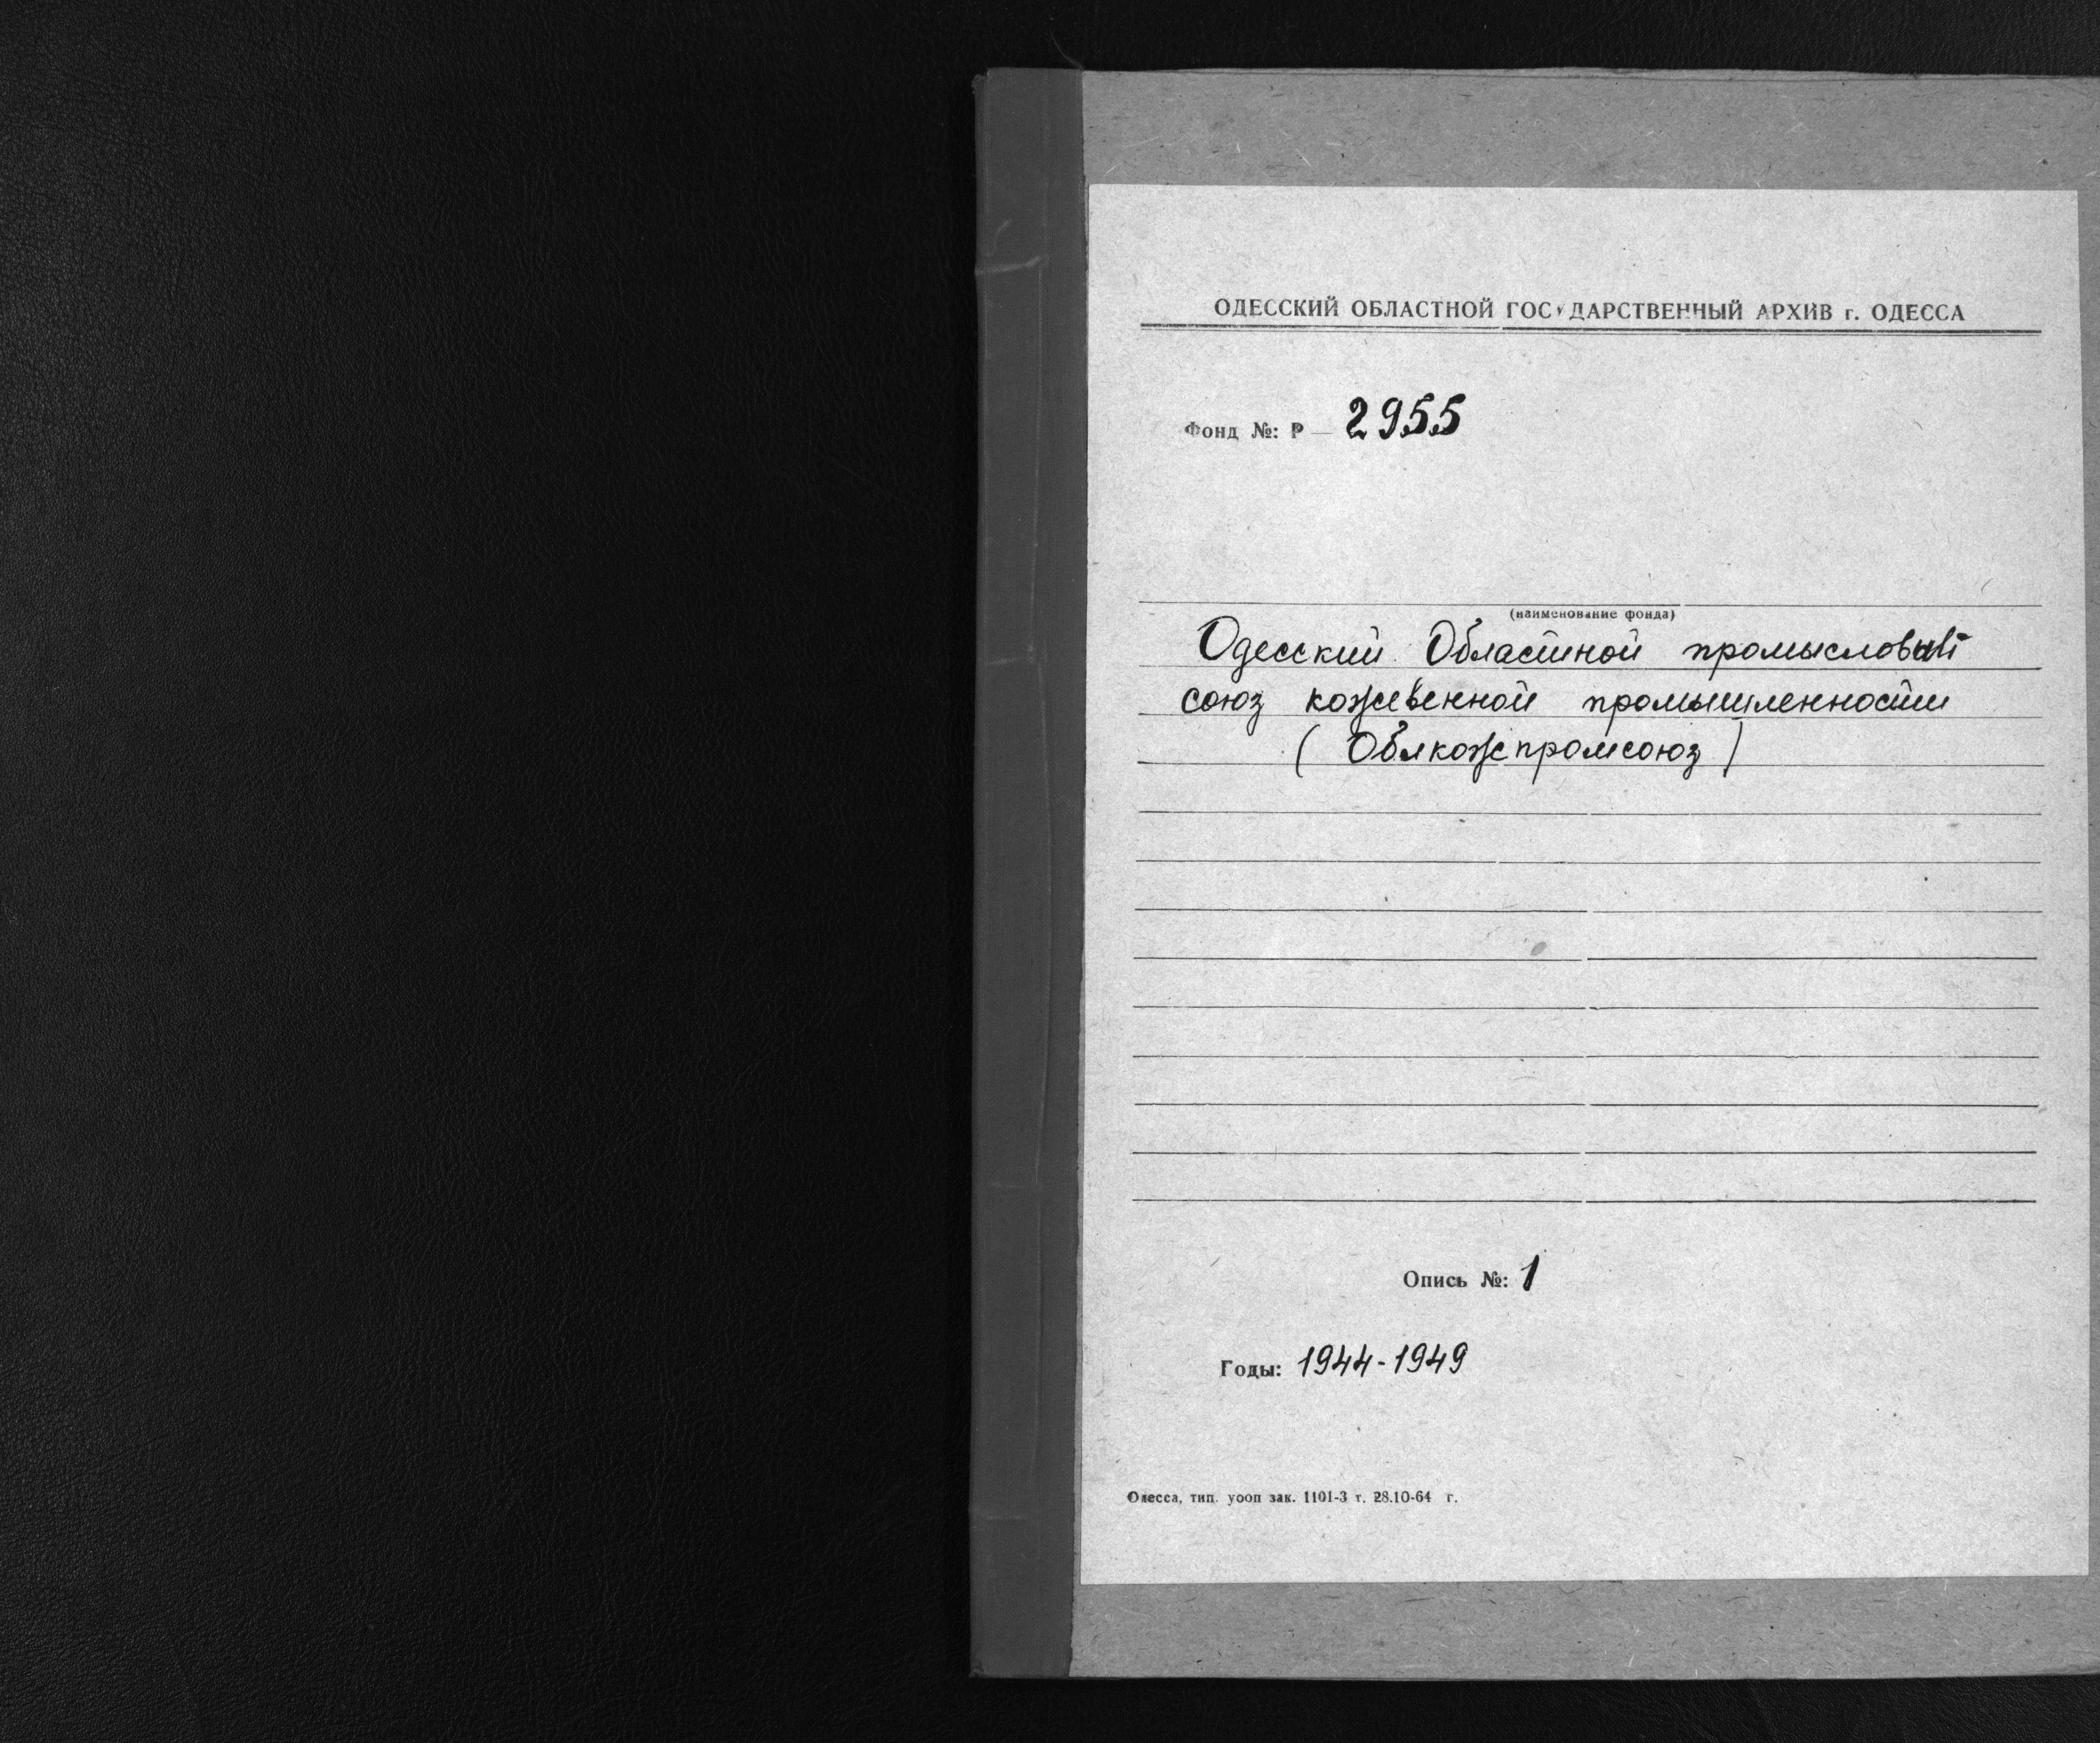 ОДЕССКИЙ ОБЛАСТНОЙ ГОСУДАРСТВЕННЫЙ АРХИВ г. ОДЕССА
Фонд №: Р — 2955
(наименование фонда)
Одесский Областной промысловый
союз кожевенной промышленности
(Облкожпромсоюз)
Опись №: 1
Годы: 1944-1949
Одесса, тип. уооп зак. 1101-3 т. 28.10-64 г.